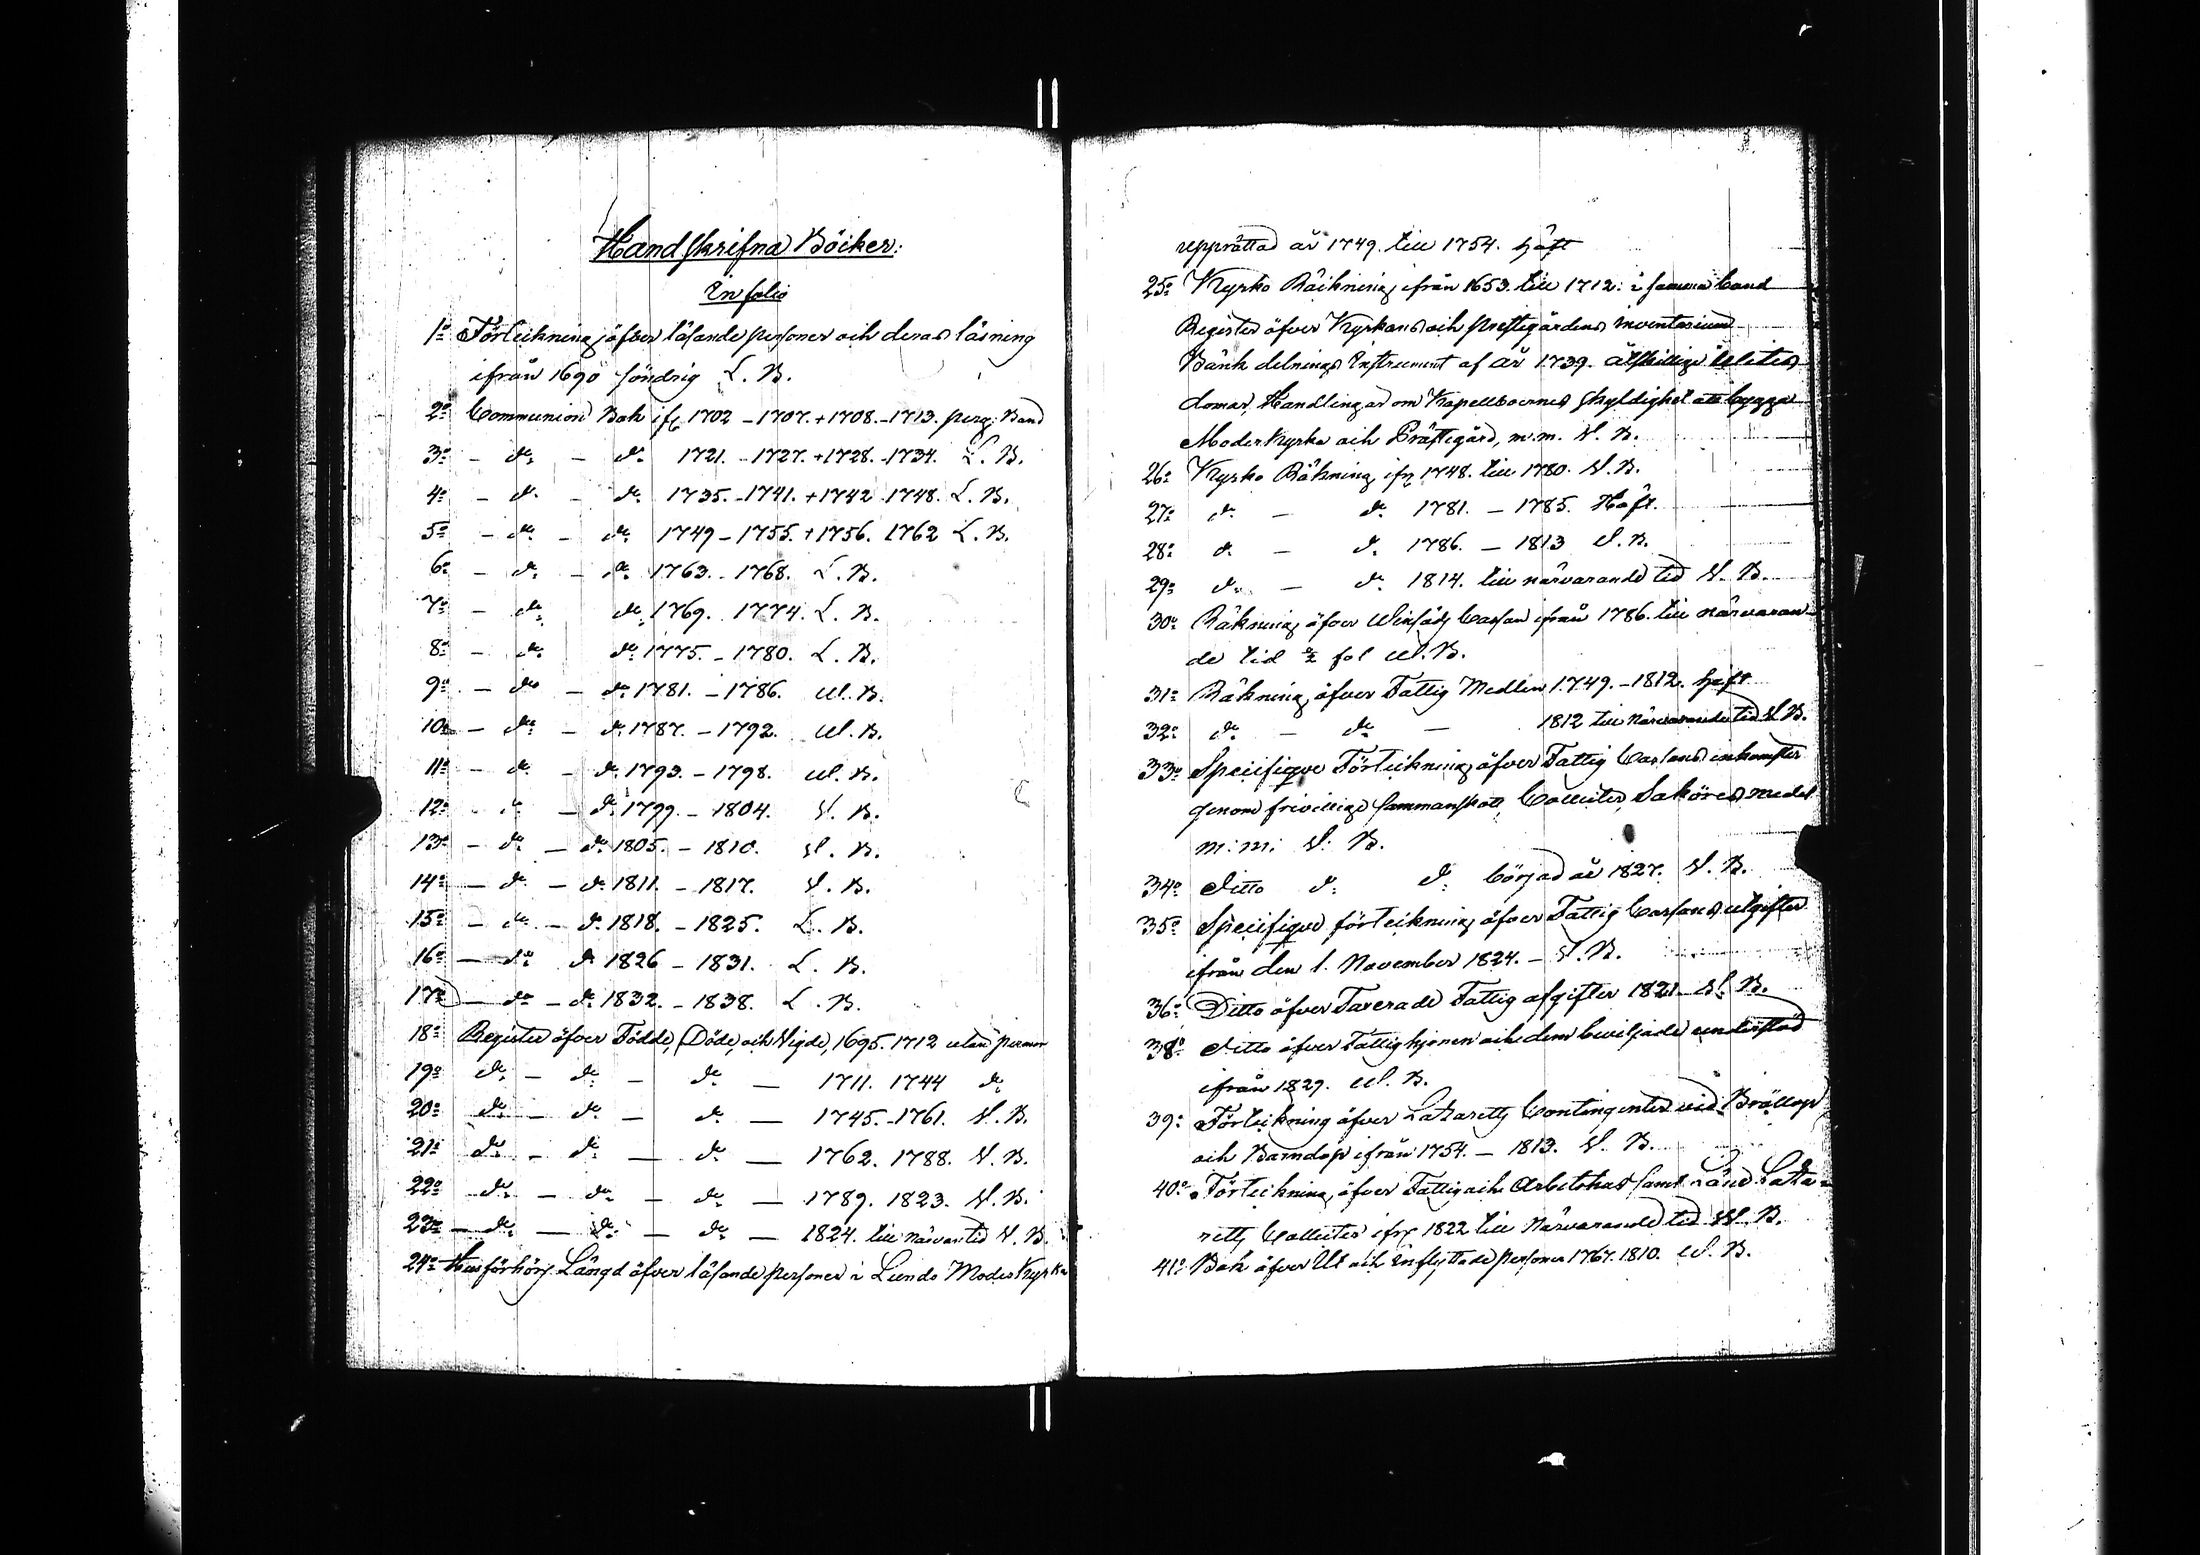 Handskrifna Böcker:
In folio
1o Förteckning öfver läsande personer och deras läsning
ifrån 1690 söndrig L. B.
2o Communion Bok ifr 1702 - 1707. + 1708. - 1713. perg: Band
3o - do - do 1721. - 1727. + 1728. - 1734. L. B.
4o - do - do 1735. - 1741. + 1742 - 1748. L. B.
5o - do - do 1749 - 1755. + 1756. 1762 L. B.
6o - do - do 1763. - 1768. L. B.
7o - do do 1769. 1774. L. B.
8o - do do 1775. - 1780. L. B.
9o - do - do 1781. - 1786. W. B.
10o - do - do 1787. - 1792. W. B.
11o - do - do 1793. - 1798. W. B.
12o - do - do 1799. - 1804. W. B.
13o - do - do 1805. - 1810. W. B.
14o - do - do 1811. - 1817. W. B.
15o - do - do 1818. - 1825. L. B.
16o - do do 1826 - 1831. L. B.
17o - do - do 1832. - 1838. L. B.
18o Register öfver Födde, Döde, och Vigde, 1695. 1712 utan permar
19o do - do - do - 1711. 1744 do
20o do - do - do - 1745. - 1761. W. B.
21o do - do - do - 1762. 1788. W. B.
22o do - do - do - 1789. 1823. W. B.
23o - do - do - do - 1824. till närvar tid W. B.
24o Husförhörs Längd öfver läsande personer i Lundo Moder Kyrka
upprättad år 1749. till 1754. häft
25o Kyrko Räckning ifrån 1653. till 1712. i samma band
Register öfver Kyrkans och prestegårdens inventarium
Bänk delnings Instrument af år 1739. åtskillige
domar, Handlingar om Kapellboernes skyldighet att bygga
Moderkyrka och Prästegård, m.m. W. B.
26o Kyrko Räkning ifr 1748. till 1780. W. B.
27o do - do 1781. - 1785. Häft.
28o do - do 1786. - 1813 W. B.
29o do - do 1814. till närvarande tid W. B.
30o Räkning öfver Vinsäds Cassan ifrån 1786. till närvaran-
de tid fol W. B.
31o Räkning öfver Fattig Medlen 1749. - 1812. häft
32o do - do - 1812 till närvarande tid W. B.
33o Specifique Förteckning öfver Fattig Cassans inkomster
genom frivillige sammanskott, Collecter, Saköres medel
m: m: W. B.
34o Ditto do do börjad år 1827. W. B.
35o Specifique förteckning öfver Fattig Cassans utgifter
ifrån den 1. November 1824. - W. B.
36o Ditto öfver Taxerade Fattig afgifter 1821 W. B.
38o Ditto öfver Fattighjonen och dem beviljade understöd
ifrån 1829. W. B.
39o Förteckning öfver Lazaretts Contingenter vid Bröllop
och Barndop ifrån 1754. - 1813. W. B.
40o Förteckning öfver Fattig och Arbetshus samt Länd Laza-
retts Collecter ifr 1822 till närvarande tid W. B.
41o Bok öfver Ut och Inflyttade personer 1767. 1810. W. B.